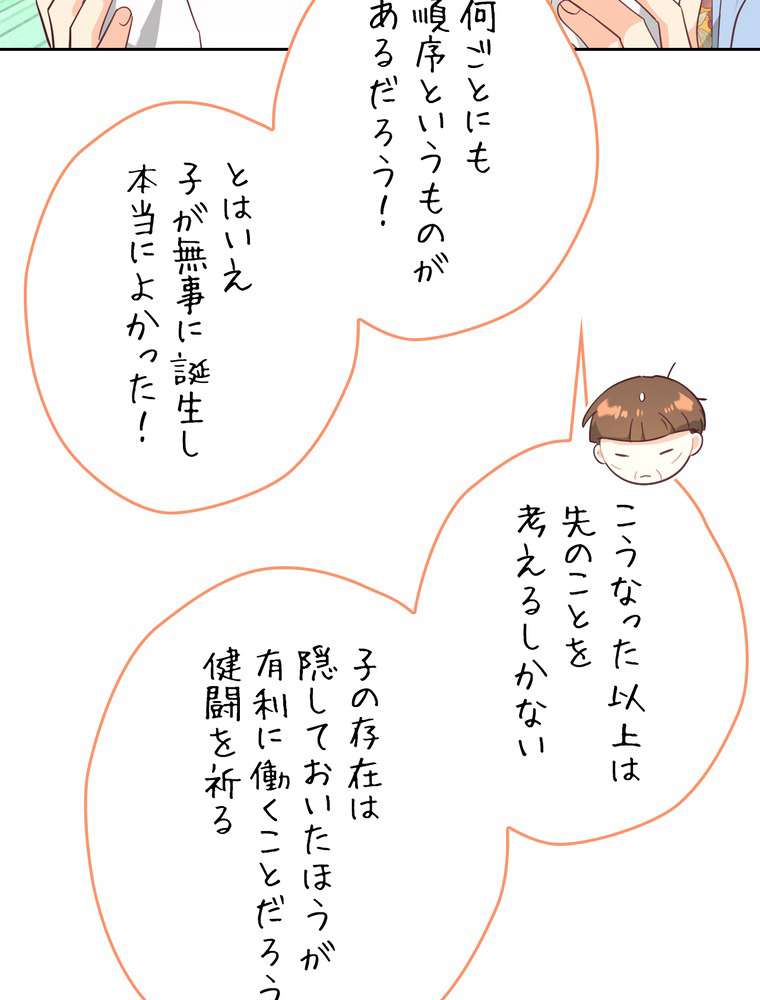 何ごとにも
順序というものが
あるだろう！
とはいえ
子が無事に誕生し
本当によかった！
こうなった以上は
先のことを
考えるしかない
子の存在は
隠しておいたほうが
有利に働くことだろう
健闘を祈る